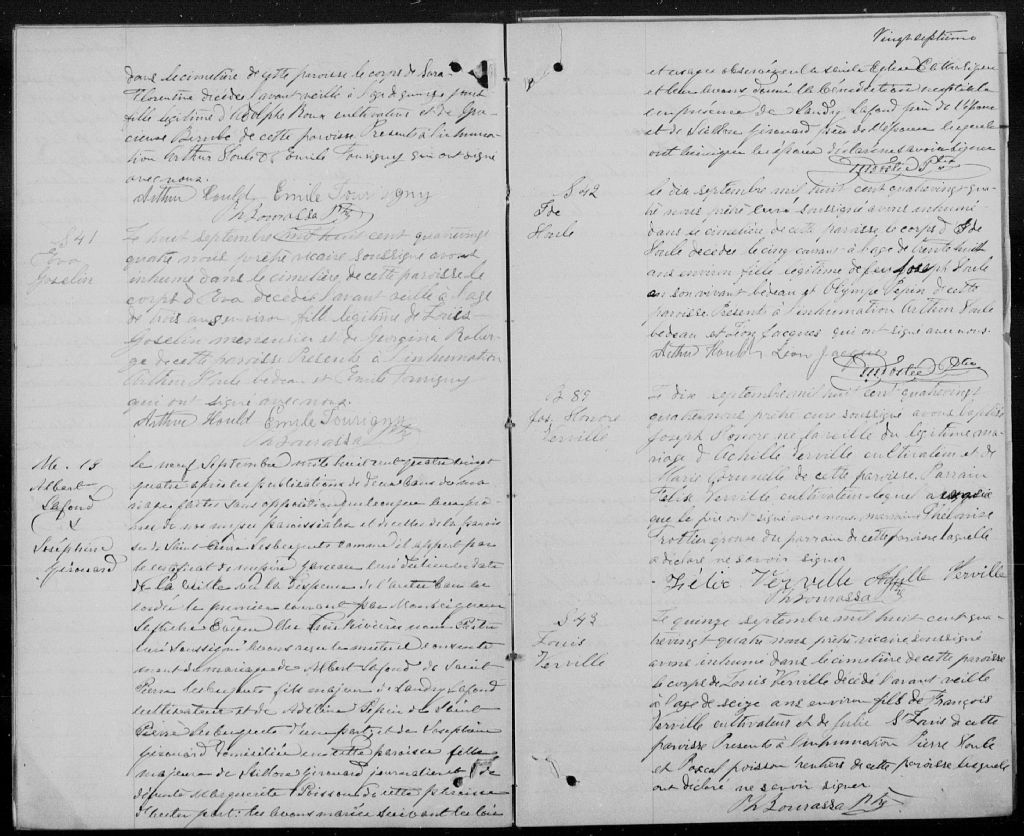 dans le cimetière de cette paroisse le corps de Sara
Florentine décédée l'avant veille à l'age de quinze jours
fille légitime d'Adolphe Roux cultivateur et de Gra-
cieuse Bérubé de cette paroisse Présents à l'inhuma-
tion Arthur Houle & Emile Tourigny qui ont signé
avec nous.
Arthur Hould, Emile Tourigny
Ph Lourassa Ptre
S 41
Eva
Gosselin
Le huit septembre mil huit cent quatrevingt
quatre nous prêtre vicaire soussigné avons
inhumé dans le cimetière de cette paroisse le
corps d'Eva décédée l'avant veille à l'age
de trois ans environ fille légitime de Louis
Gosselin menuisier et de Georgina Rober-
ge de cette paroisse Présents à l'inhumation
Arthur Houle bedeau et Emile Tourigny
qui ont signé avec nous.
Arthur Hould Emile Tourigny
Ph Lourassa Ptre
M. 13
Albert
Lafond
&
Joséphine
Girouard
Le neuf Septembre mil huit cent quatre vingt
quatre après les publications de deux bans de ma-
riage faites sans opposition ni
de nos messes paroissiales et de celles de la parois-
se de Saint Pierre les becquets comme il appert par
le certificat de messire curé du lieu en date
de la veille vu la dispense de l'autre ban ac-
cordée le premier courant par Monseigneur
Laflèche Evêque des Trois Rivières nous Prêtre
curé soussigné avons reçu le mutuel consente-
ment de mariage de Albert Lafond de Saint
Pierre les becquets fils majeur de Landry Lafond
cultivateur et de Adeline Pepin de Saint
Pierre les becquets d'une part, et de Joséphine
Girouard domiciliée en cette paroisse fille
majeure de Girouard journalier et de
défunte Marguerite Poisson de cette paroisse
d'autre part: les avons mariés suivant les lois
Vingt septième
et usages observés en la sainte Eglise Catholique
et leur avons donné la bénédiction nuptiale
en présence de Landry Lafond père de l'époux
et de Girouard père de l'épouse lesquels
ont ainsi que les époux déclaré ne savoir signer
Ptre
S 42
Ide
Houle
Le dix septembre mil huit cent quatrevingt qua-
tre nous prêtre curé soussigné avons inhumé
dans le cimetière de cette paroisse le corps d'Ide
Houle décédée le cinq courant à l'age de trente huit
ans environ fille légitime de feu Joseph Houle
en son vivant bedeau et Olympe Pepin de cette
paroisse Présents à l'inhumation Arthur Houle
bedeau et Léon Jacques qui ont signé avec nous.
Arthur Hould, Léon Jacques
Ptre
B 89
Jos. Honoré
Verville
Le dix septembre mil huit cent quatrevingt
quatre nous prêtre curé soussigné avons baptisé
Joseph Honoré né la veille du légitime ma-
riage d'Achille Verville cultivateur et de
Marie de cette paroisse. Parrain
Felix Verville cultivateur lequel a
que le père ont signé avec nous, marraine Philomise
Trottier épouse du parrain de cette paroisse laquelle
a déclaré ne savoir signer
Félix Verville Achille Verville
Ph Lourassa Ptre
S 43
Louis
Verville
Le quinze septembre mil huit cent qua-
trevingt quatre nous prêtre vicaire soussigné
avons inhumé dans le cimetière de cette paroisse
le corps de Louis Verville décédé l'avant veille
à l'age de seize ans environ fils de François
Verville cultivateur et de Julie St Louis de cette
paroisse Présents à l'inhumation Pierre Houle
et Pascal poisson rentiers de cette paroisse lesquels
ont déclaré ne savoir signer
Ph Lourassa Ptre